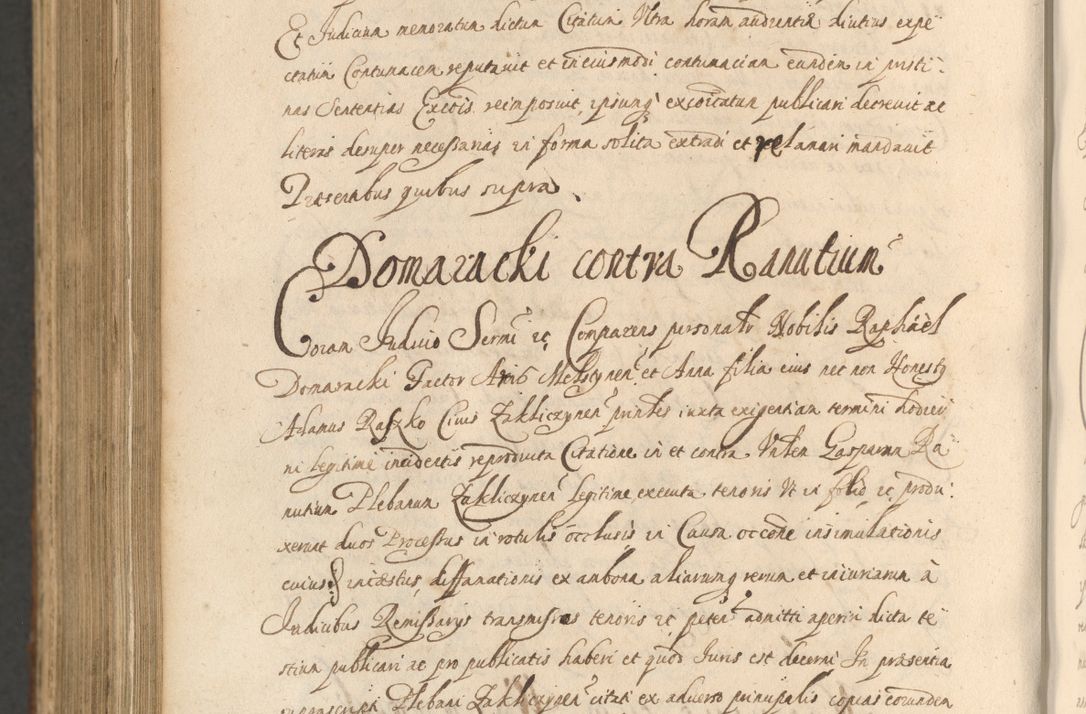 Et Judicium memoratum dictum Citatum Ultra horam audientiæ diutius expe
ctatum Contumacem reputavit et in eiusmodi contumaciam eundem in pristi:
nas Sententias Exctis reimposuit, ipsumq excoicatum publicari decrevit ac
literas desuper necessarias in forma solita extradi et relaxari mandavit
Præsentibus quibus supra
Domaracki contra Ranutium
Coram Judicio Sermi etc Comparens personalr Nobilis Raphaël
Domaracki Factor Arcis Melstynen et Anna filia eius nec non Honesty
Adamus Raszko Civis Zakliczynen prinles iuxta exigentiam termini hodier
ni legitime incidentis reproducta Citatione in et contra Vnlem Gasparum Ra
nutium Plebanum Zakliczynen legitime executa tenoris Vt in folio etc produ:
xerunt duos Processus in rotulis occlusis in Causa occõne insimulationis
cuius incæstus, diffamationis ex ambona aliarumq rerum et iniuriarum à
Judicibus Remissarys transmissos tenoris etc peten admitti aperiri dicta te
stium publicari ac pro publicatis haberi et quod Juris est decerni In præsentia
suprascripti Plebani Zakliczynen citati ex adverso principalis copias eorundem